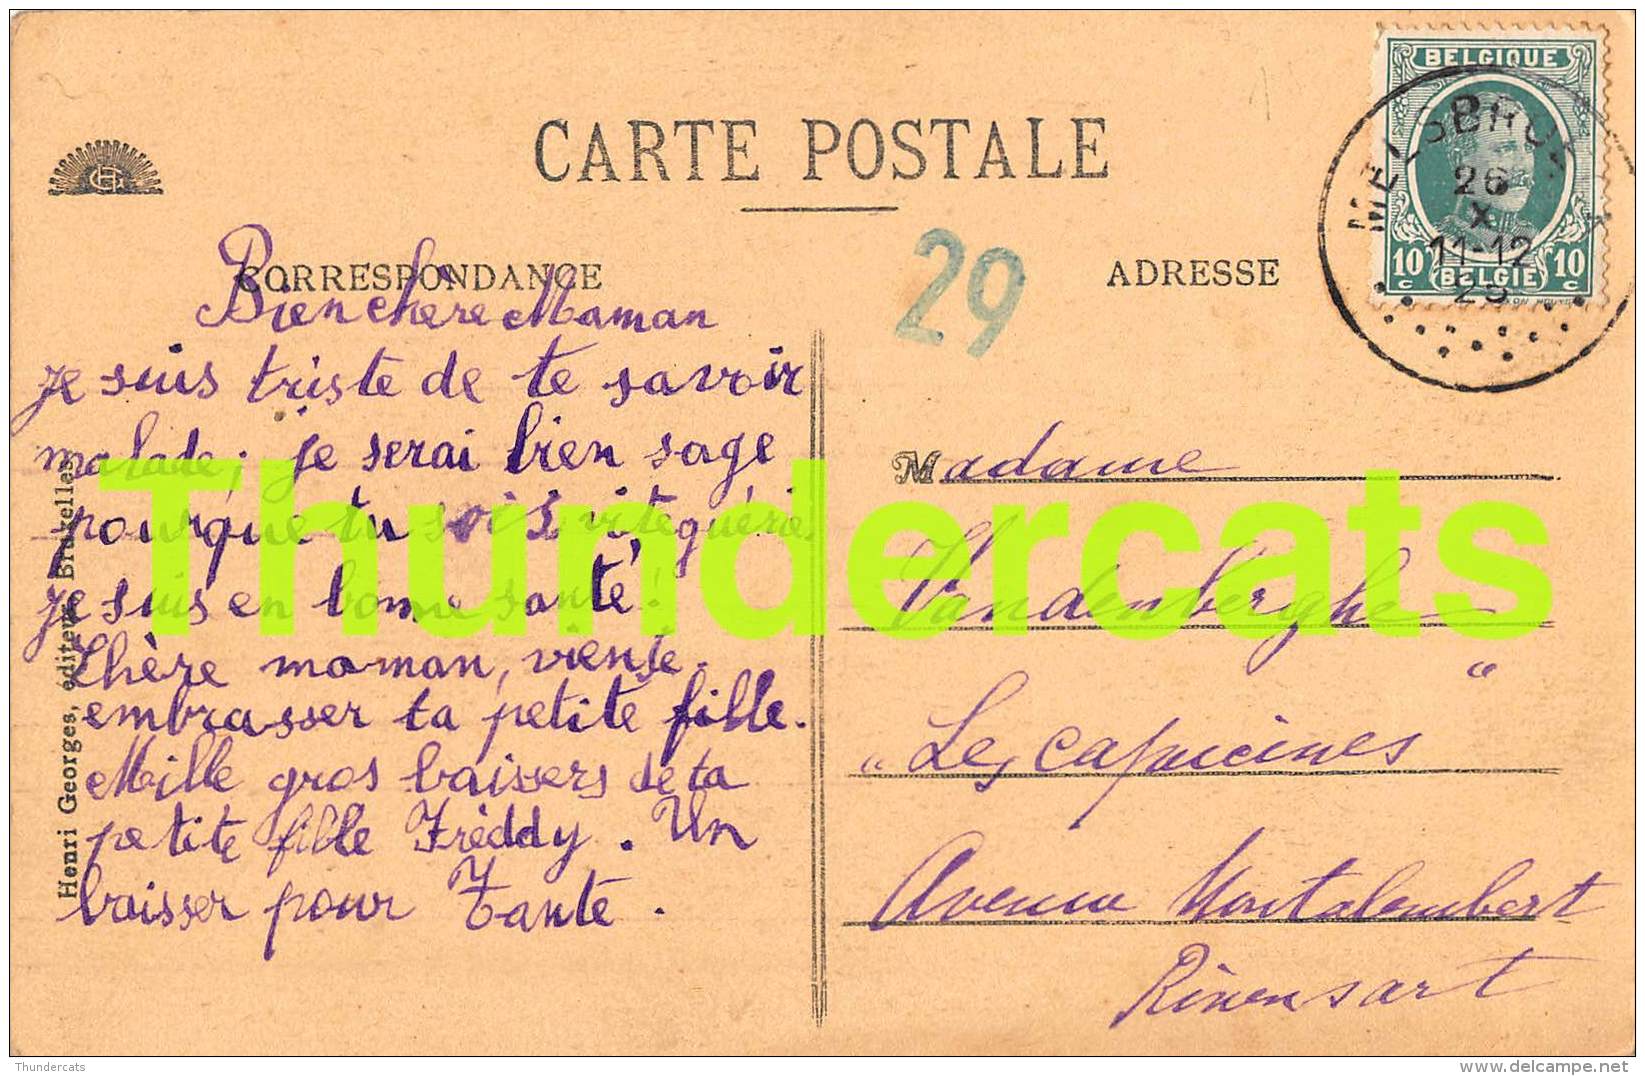 BELGIQUE
MELSBROEK
26
X
11-12
29
10 c
BELGIE
10 c
CARTE POSTALE
CORRESPONDANCE
29
ADRESSE
Bien chère Maman
je suis triste de te savoir
malade; je serai bien sage
pourque tu sois vite guérie.
je suis en bonne santé!
Chère maman, viens
embrasser ta petite fille.
Mille gros baisers de ta
petite fille Freddy. Un
baiser pour Tante.
Henri Georges, éditeur, Bruxelles
Madame
Vandenberghe
"Les capucines"
Avenue Montalembert
Rixensart
Thundercats
Thundercats
www.delcampe.net